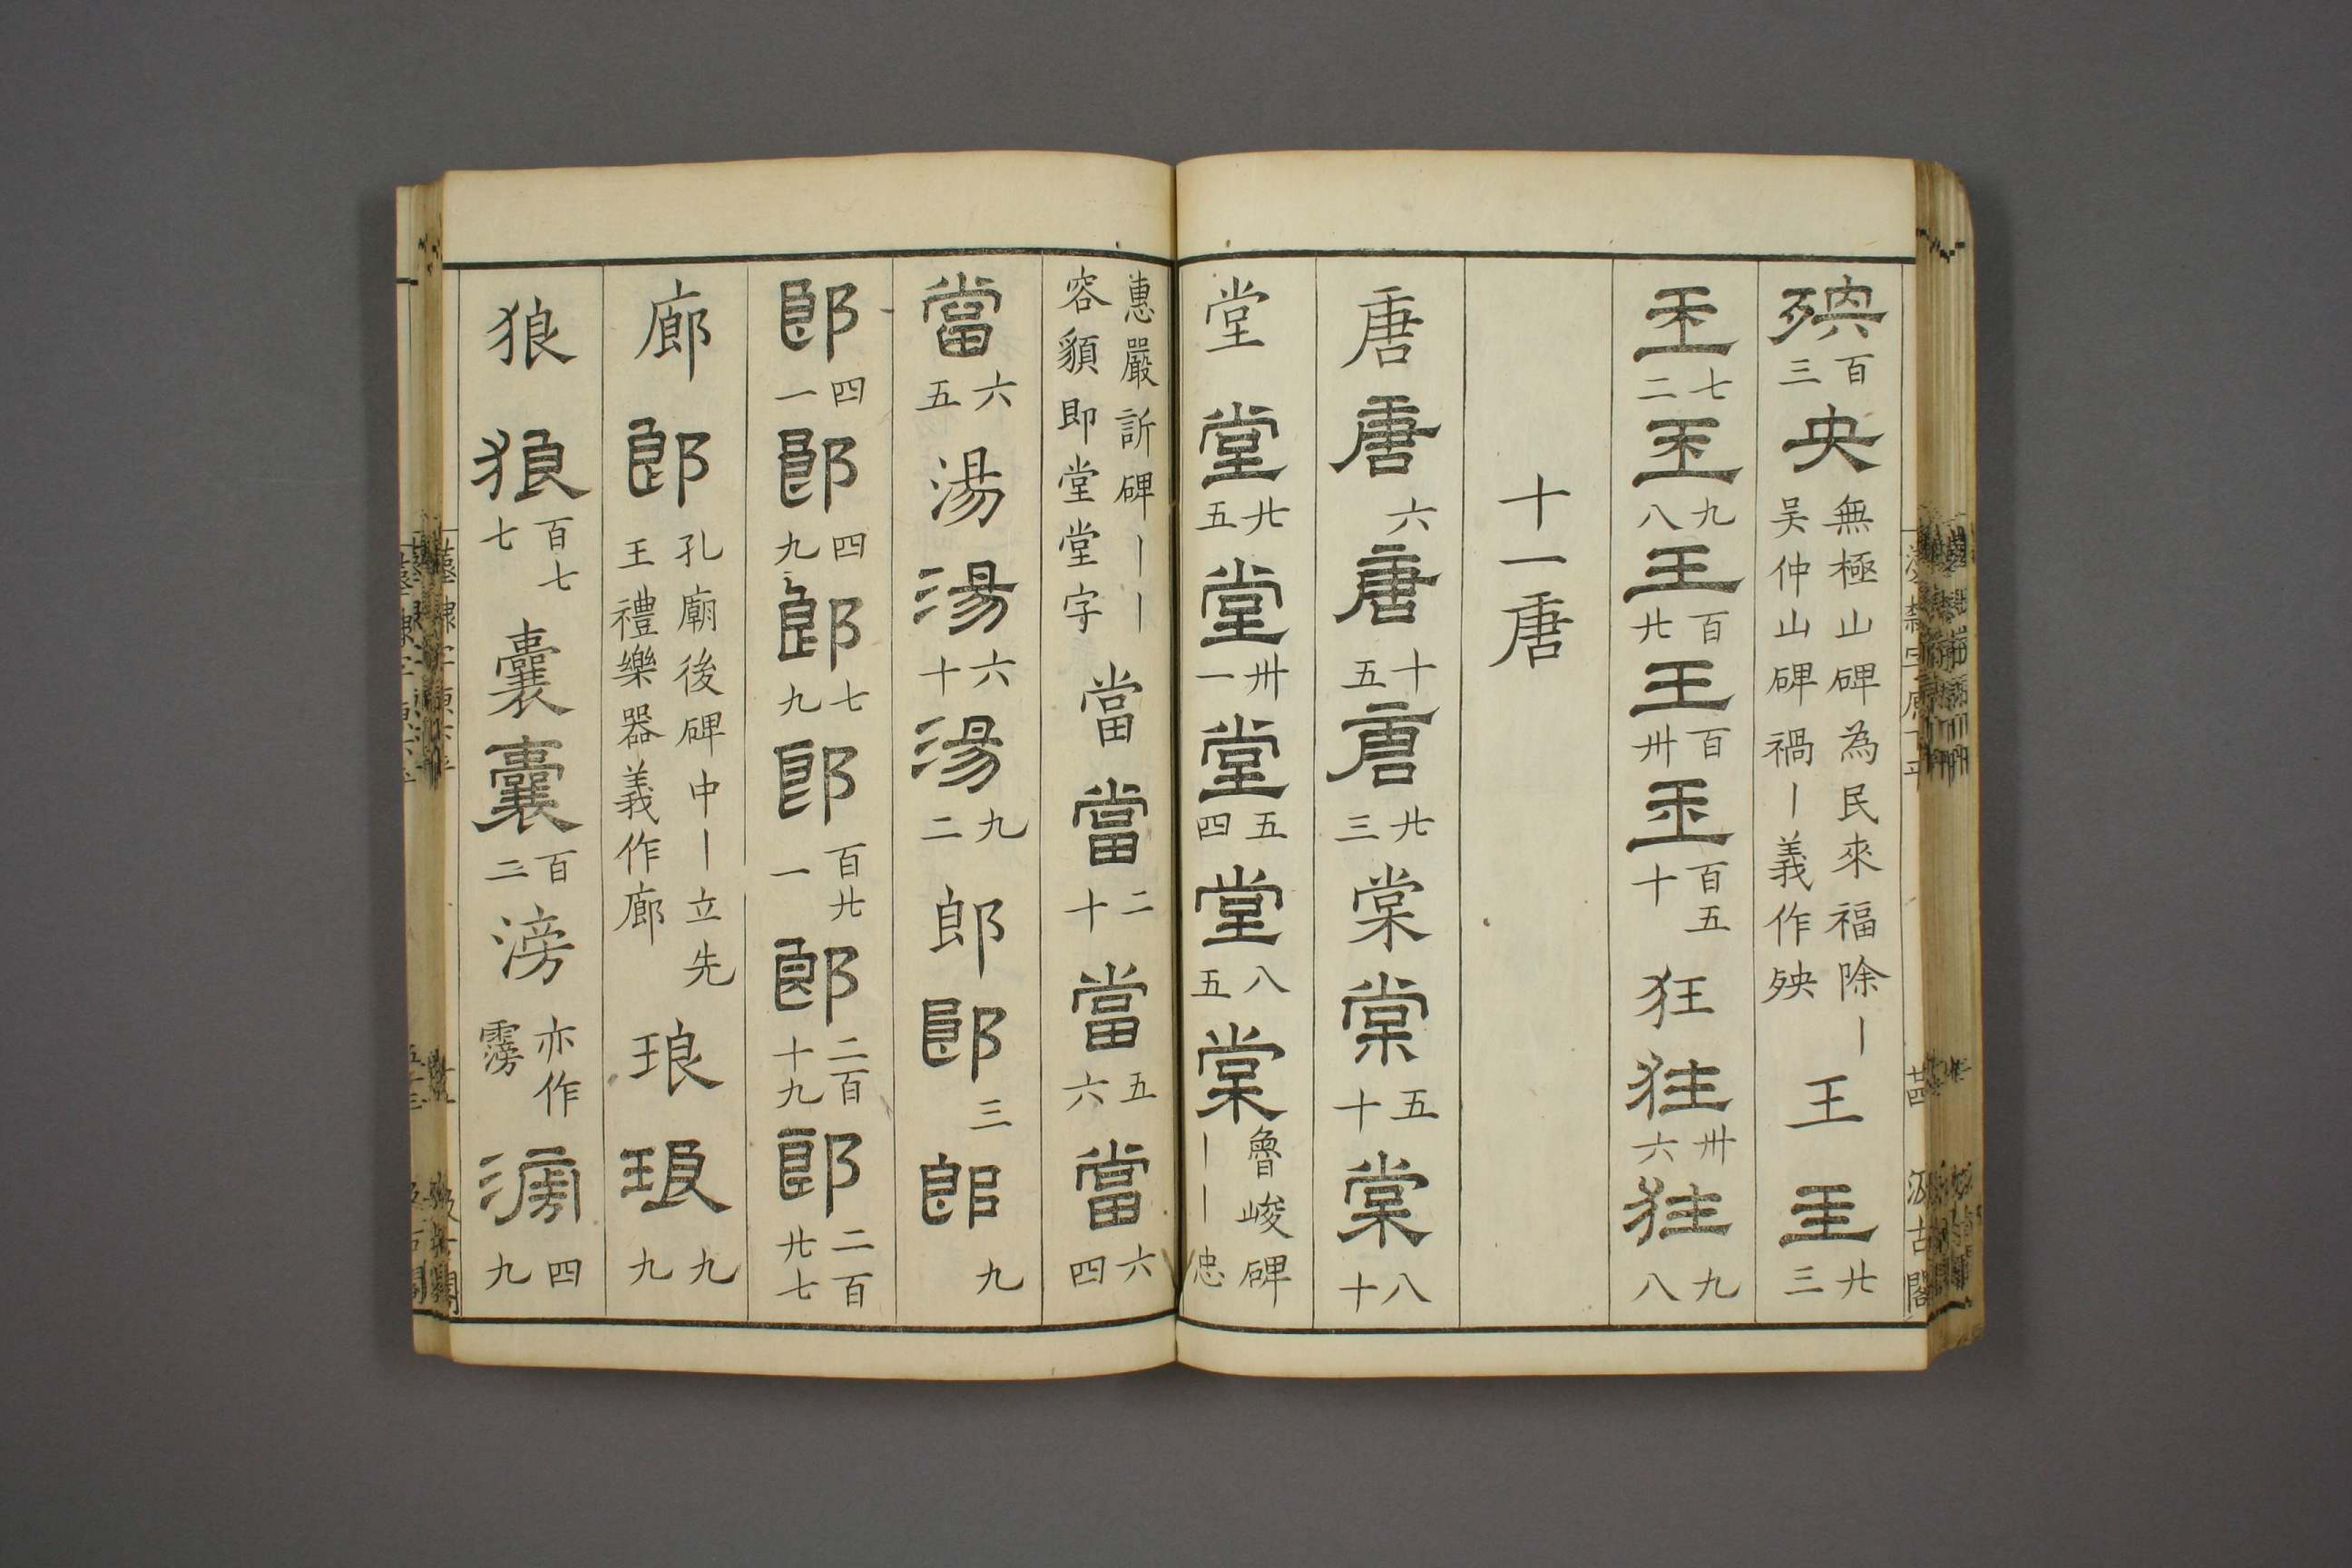 殃 百三 央 無極山碑為民來福除丨吴仲山碑禍丨義作殃 王 王 廿三
王 七二 王 九八 王 百廿 王 百卅 王 百五十 狂 狂 卅六 狂 九八
十一唐
唐 唐 六 唐 十五 唐 廿三 棠 棠 五十 棠 八十
堂 堂 廿五 堂 卅一 堂 五四 堂 八五 棠 魯峻碑丨丨忠
惠嚴訢碑丨丨容䫉即堂堂字 當 當 二十 當 五六 當 六四
當 六五 湯 湯 六十 湯 九二 郎 郎 三 郎 九
郎 四一 郎 四九 郎 七九 郎 百廿一 郎 二百十九 郎 二百廿七
廊 郎 孔廟後碑中丨立先王禮樂器義作廊 琅 琅 九九
狼 狼 百七七 囊 囊 百三 滂 亦作霶 滂 四九
漢隸字原下平 廿四 汲古閣